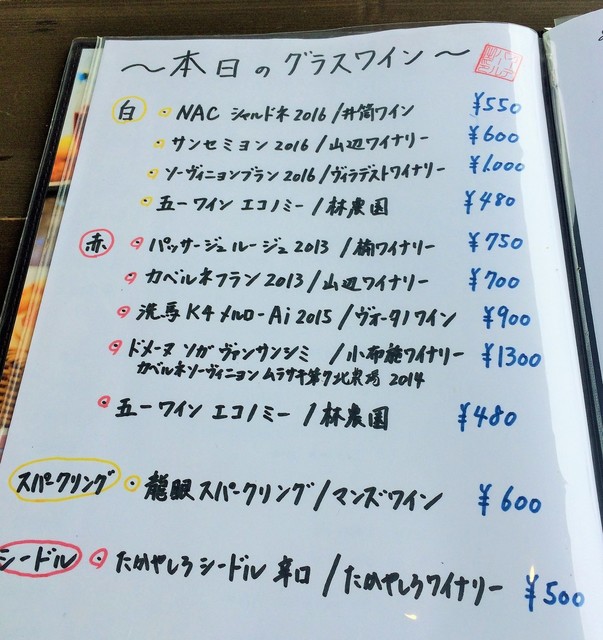 〜本日のグラスワイン〜
白 NAC シャルドネ 2016 / 井筒ワイン ¥550
サンセミヨン 2016 / 山辺ワイナリー ¥600
ソーヴィニョンブラン 2016 / ヴィラデストワイナリー ¥1.000
五一ワイン エコノミー / 林農園 ¥480
赤 パッサージュ ルージュ 2013 / 楠ワイナリー ¥750
カベルネフラン 2013 / 山辺ワイナリー ¥700
洗馬 K4 メルロー Ai 2015 / ヴォータノワイン ¥900
ドメーヌ ソガ ヴァンサンシミ / 小布施ワイナリー ¥1300
カベルネソーヴィニョン ムラサキ第7北農場 2014
五一ワイン エコノミー / 林農園 ¥480
スパークリング 龍眼スパークリング / マンズワイン ¥600
シードル たかやしろシードル 辛口 / たかやしろワイナリー ¥500